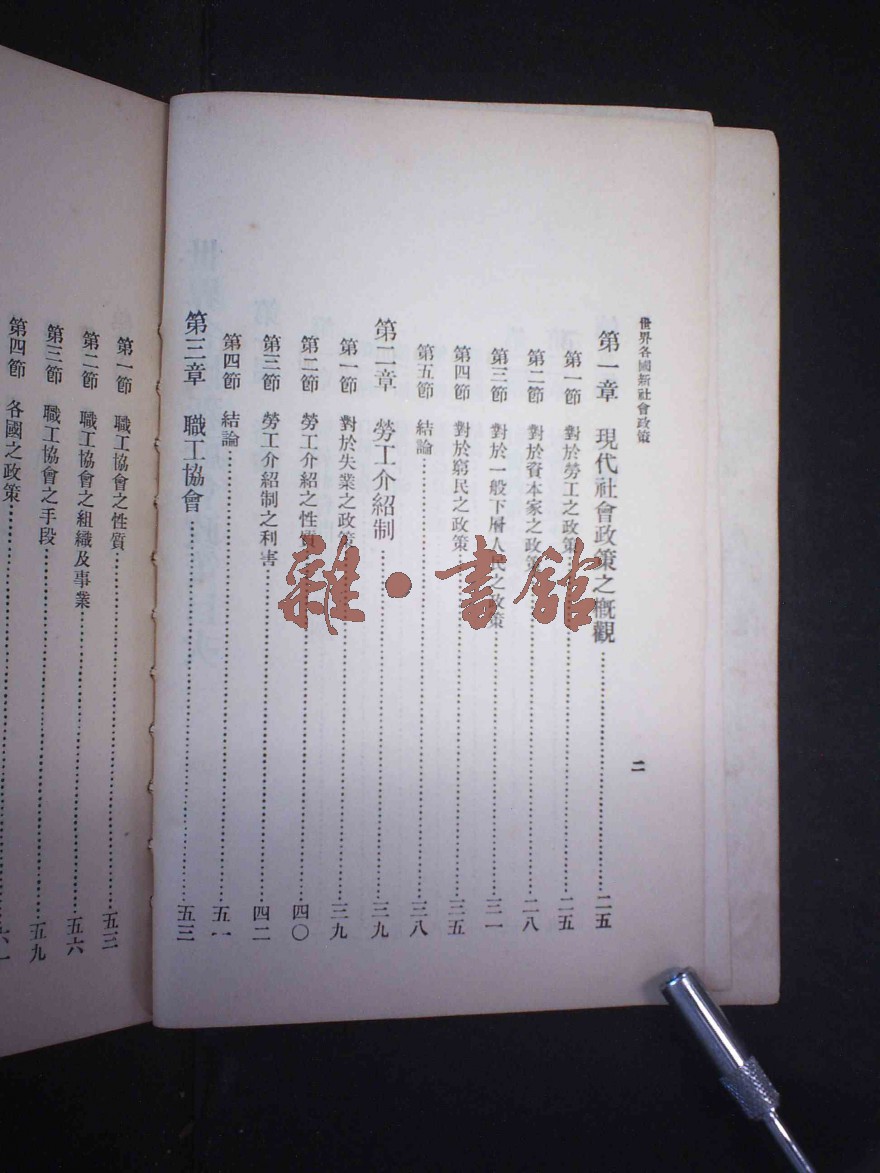 世界各國新社會政策
二
第一章 現代社會政策之概觀……二五
第一節 對於勞工之政策……二五
第二節 對於資本家之政策……二八
第三節 對於一般下層人民之政策……三一
第四節 對於窮民之政策……三五
第五節 結論……三八
第二章 勞工介紹制……三九
第一節 對於失業之政策……三九
第二節 勞工介紹之性質……四〇
第三節 勞工介紹制之利害……四二
第四節 結論……五一
第三章 職工協會……五三
第一節 職工協會之性質……五三
第二節 職工協會之組織及事業……五六
第三節 職工協會之手段……五九
第四節 各國之政策……六一
雜·書館